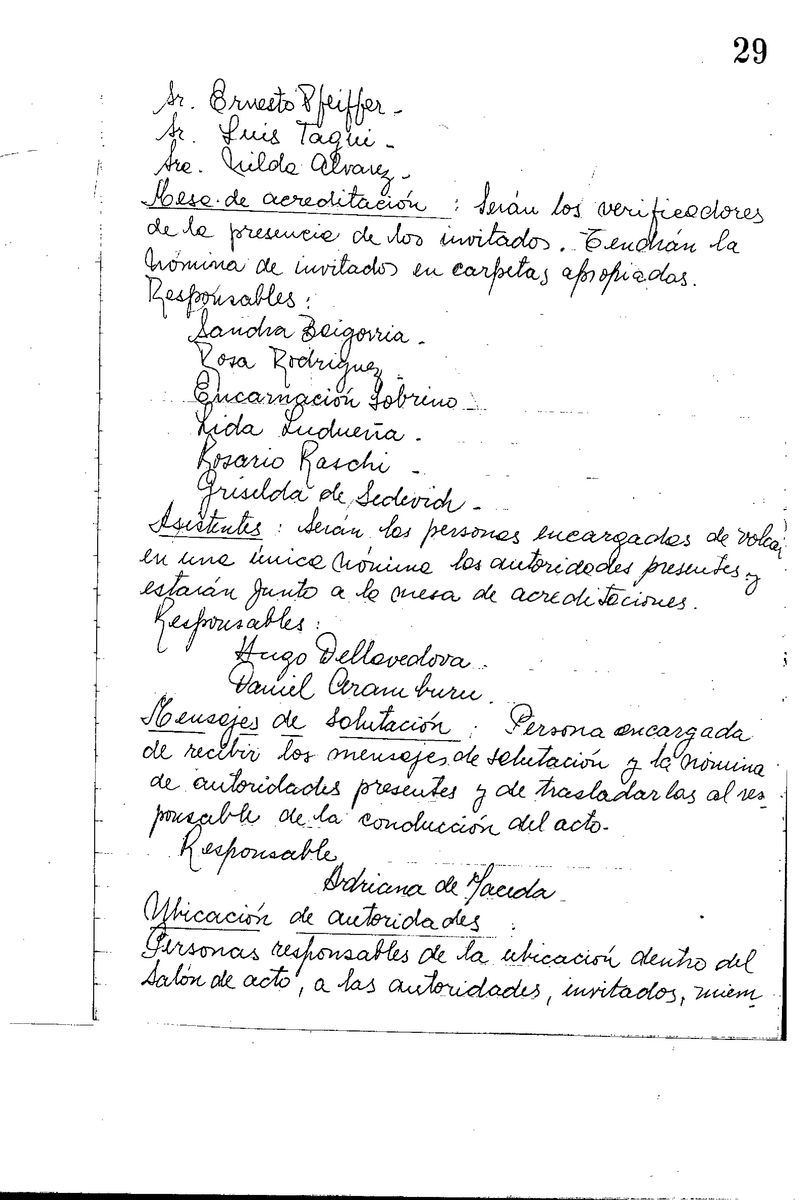 29
Sr. Ernesto Pfeiffer -
Sr. Luis Taqui -
Sra. Nilda Alvarez -
Mesa de acreditación : Serán los verificadores
de la presencia de los invitados. Tendrán la
nómina de invitados en carpetas apropiadas.
Responsables :
Sandra Baigorria -
Rosa Rodriguez -
Encarnación Sobrino
Lida Ludueña -
Rosario Raschi -
Griselda de Sedevich -
Asistentes : Serán las personas encargadas de volcar
en una única nómina las autoridades presentes y
estarán junto a la mesa de acreditaciones.
Responsables :
Hugo Dellavedova -
Daniel Aramburu -
Mensajes de salutación : Persona encargada
de recibir los mensajes de salutación y la nómina
de autoridades presentes y de trasladarlas al res-
ponsable de la conducción del acto-
Responsable
Adriana de
Ubicación de autoridades :
Personas responsables de la ubicación dentro del
Salón de acto, a las autoridades, invitados, miem-